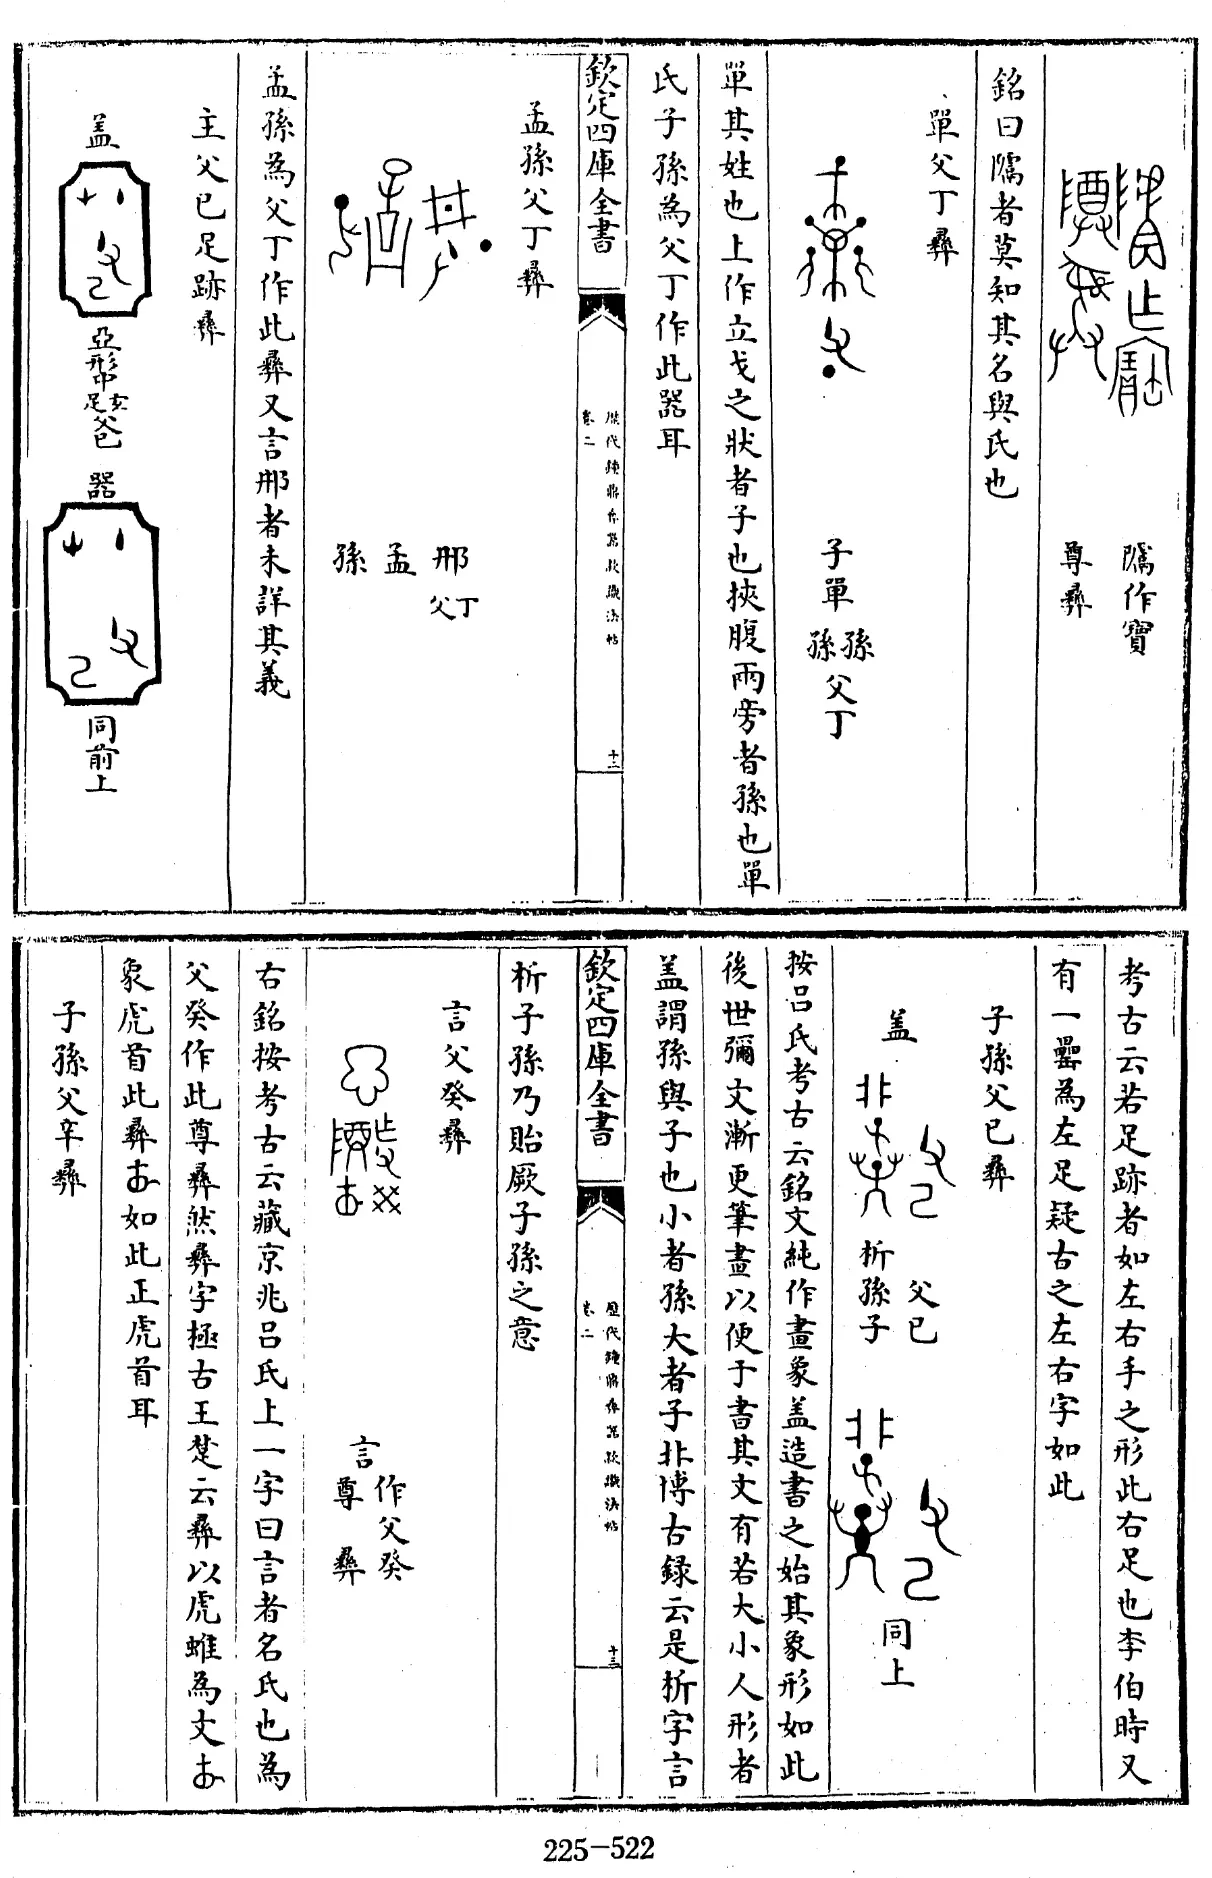 𨼫作寶
尊彝
銘曰𨼫者莫知其名與氏也
單父丁彝
子單
孫孫
父丁
單其姓也上作立戈之狀者子也挾腹兩旁者孫也單
氏子孫為父丁作此器耳
欽定四庫全書
歷代鐘鼎彝器款識法帖
卷二
十二
孟孫父丁彝
冊
父丁
孟
孫
孟孫為父丁作此彝又言冊者未詳其義
主父己足跡彝
盖
亞形中
足
父己
器
同前上
考古云若足跡者如左右手之形此右足也李伯時又
有一罍為左足疑古之左右字如此
子孫父己彝
盖
父己
析孫子
同上
按吕氏考古云銘文純作畫象盖造書之始其象形如此
後世彌文漸更筆畫以便于書其文有若大小人形者
盖謂孫與子也小者孫大者子非博古録云是析字言
欽定四庫全書
歷代鐘鼎彝器款識法帖
卷二
十三
析子孫乃貽厥子孫之意
言父癸彝
作父癸
言
尊彝
右銘按考古云藏京兆吕氏上一字曰言者名氏也為
父癸作此尊彝然彝字極古王楚云彝以虎蜼為文
象虎首此彝如此正虎首耳
子孫父辛彝
225-522